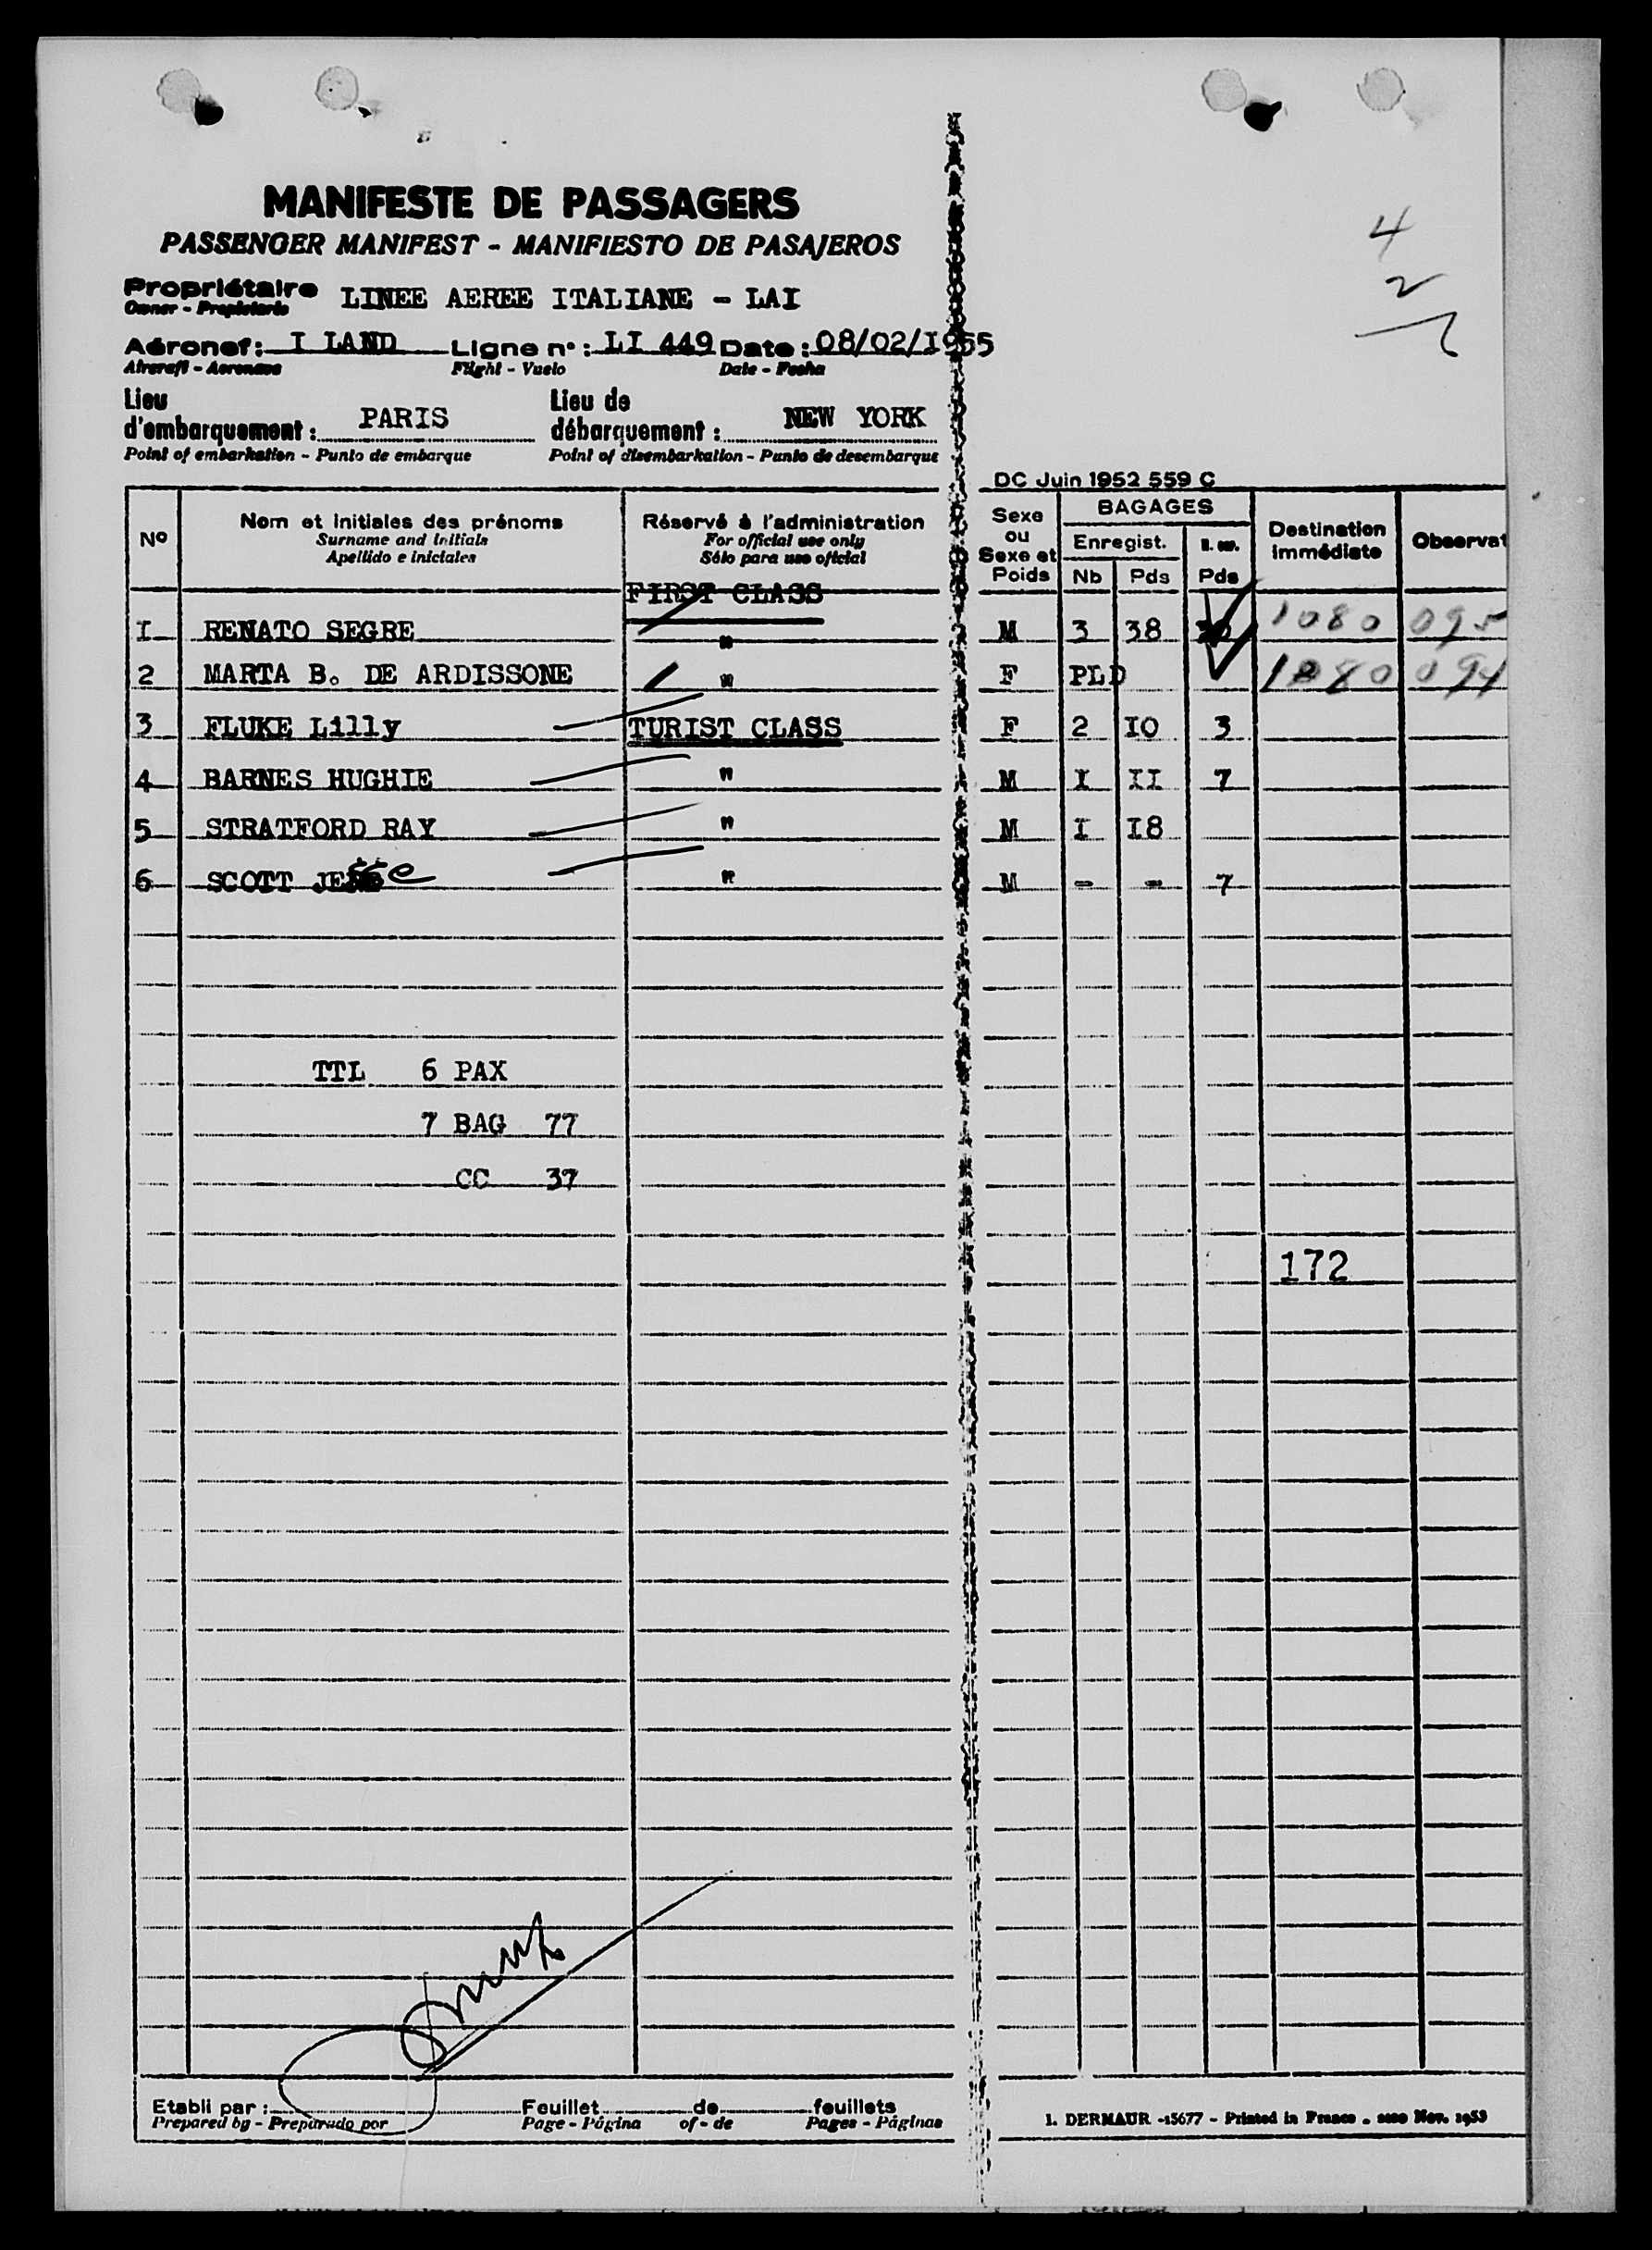 4
2
MANIFESTE DE PASSAGERS
PASSENGER MANIFEST - MANIFIESTO DE PASAJEROS
Propriétaire LINEE AEREE ITALIANE - LAI
Owner - Propietario
Aéronef: I LAND Ligne n°: LI 449 Date: 08/02/I955
Aircraft - Aeronave Flight - Vuelo Date - Fecha
Lieu d'embarquement: PARIS Lieu de débarquement: NEW YORK
Point of embarkation - Punto de embarque Point of disembarkation - Punto de desembarque
DC Juin 1952 559 C
N° Nom et initiales des prénoms Réservé à l'administration Sexe ou Sexe et Poids BAGAGES Destination immédiate Observat
Surname and Initials For official use only Enregist.
Apellido e iniciales Sólo para uso oficial Nb Pds Pds
FIRST CLASS
I RENATO SEGRE " M 3 38 1080 095
2 MARTA B. DE ARDISSONE " F PLD 1080 094
3 FLUKE Lilly TURIST CLASS F 2 IO 3
4 BARNES HUGHIE " M I II 7
5 STRATFORD RAY " M I I8
6 SCOTT JEsse " M - - 7
TTL 6 PAX
7 BAG 77
CC 37
172
Etabli par: Feuillet de feuillets
Prepared by - Preparado por Page - Página of - de Pages - Páginas
1. DERMAUR -15677 - Printed in France - Nov. 1953